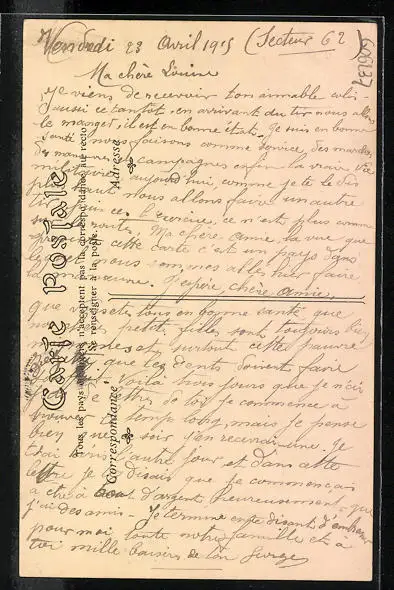 Vendredi 23 Avril 1915 (Secteur 62
Ma chère Louise
Je viens de recevoir ton aimable coli-
aussi ce tantot, en arrivant du tir nous allons
le manger, il est en bonne état. Je suis en bonne
santé nous faisons comme service, des marches
des manœuvres campagnes enfin la vraie vie
militaire, aujourd'hui, comme je te le dis
plus haut nous allons faire un autre
tir ce n'est plus comme
Ma chère Amie, la vue que
cette carte c'est un pays dans
nous sommes allés hier faire
la manœuvre. J'espère chère amie,
que vous etes tous en bonne santé que
nos petites filles sont toujours bien
et surtout cette pauvre
que les dents doivent faire
voilà trois jours que je n'ai
de toi je commence à
trouver le temps long, mais je pense
bien que ce soir j'en recevrai une. Je
l'autre jour et dans cette
lettre je te disais que je commençais
a etre à court d'argent heureusement que
j'ai des amis - Je termine en te disant d'embrasser
pour moi toute notre famille et à
toi mille baisers de ton
Carte Postale
Tous les pays étrangers n'acceptent pas la correspondance au recto
Se renseigner à la poste.
Correspondance
Adresse